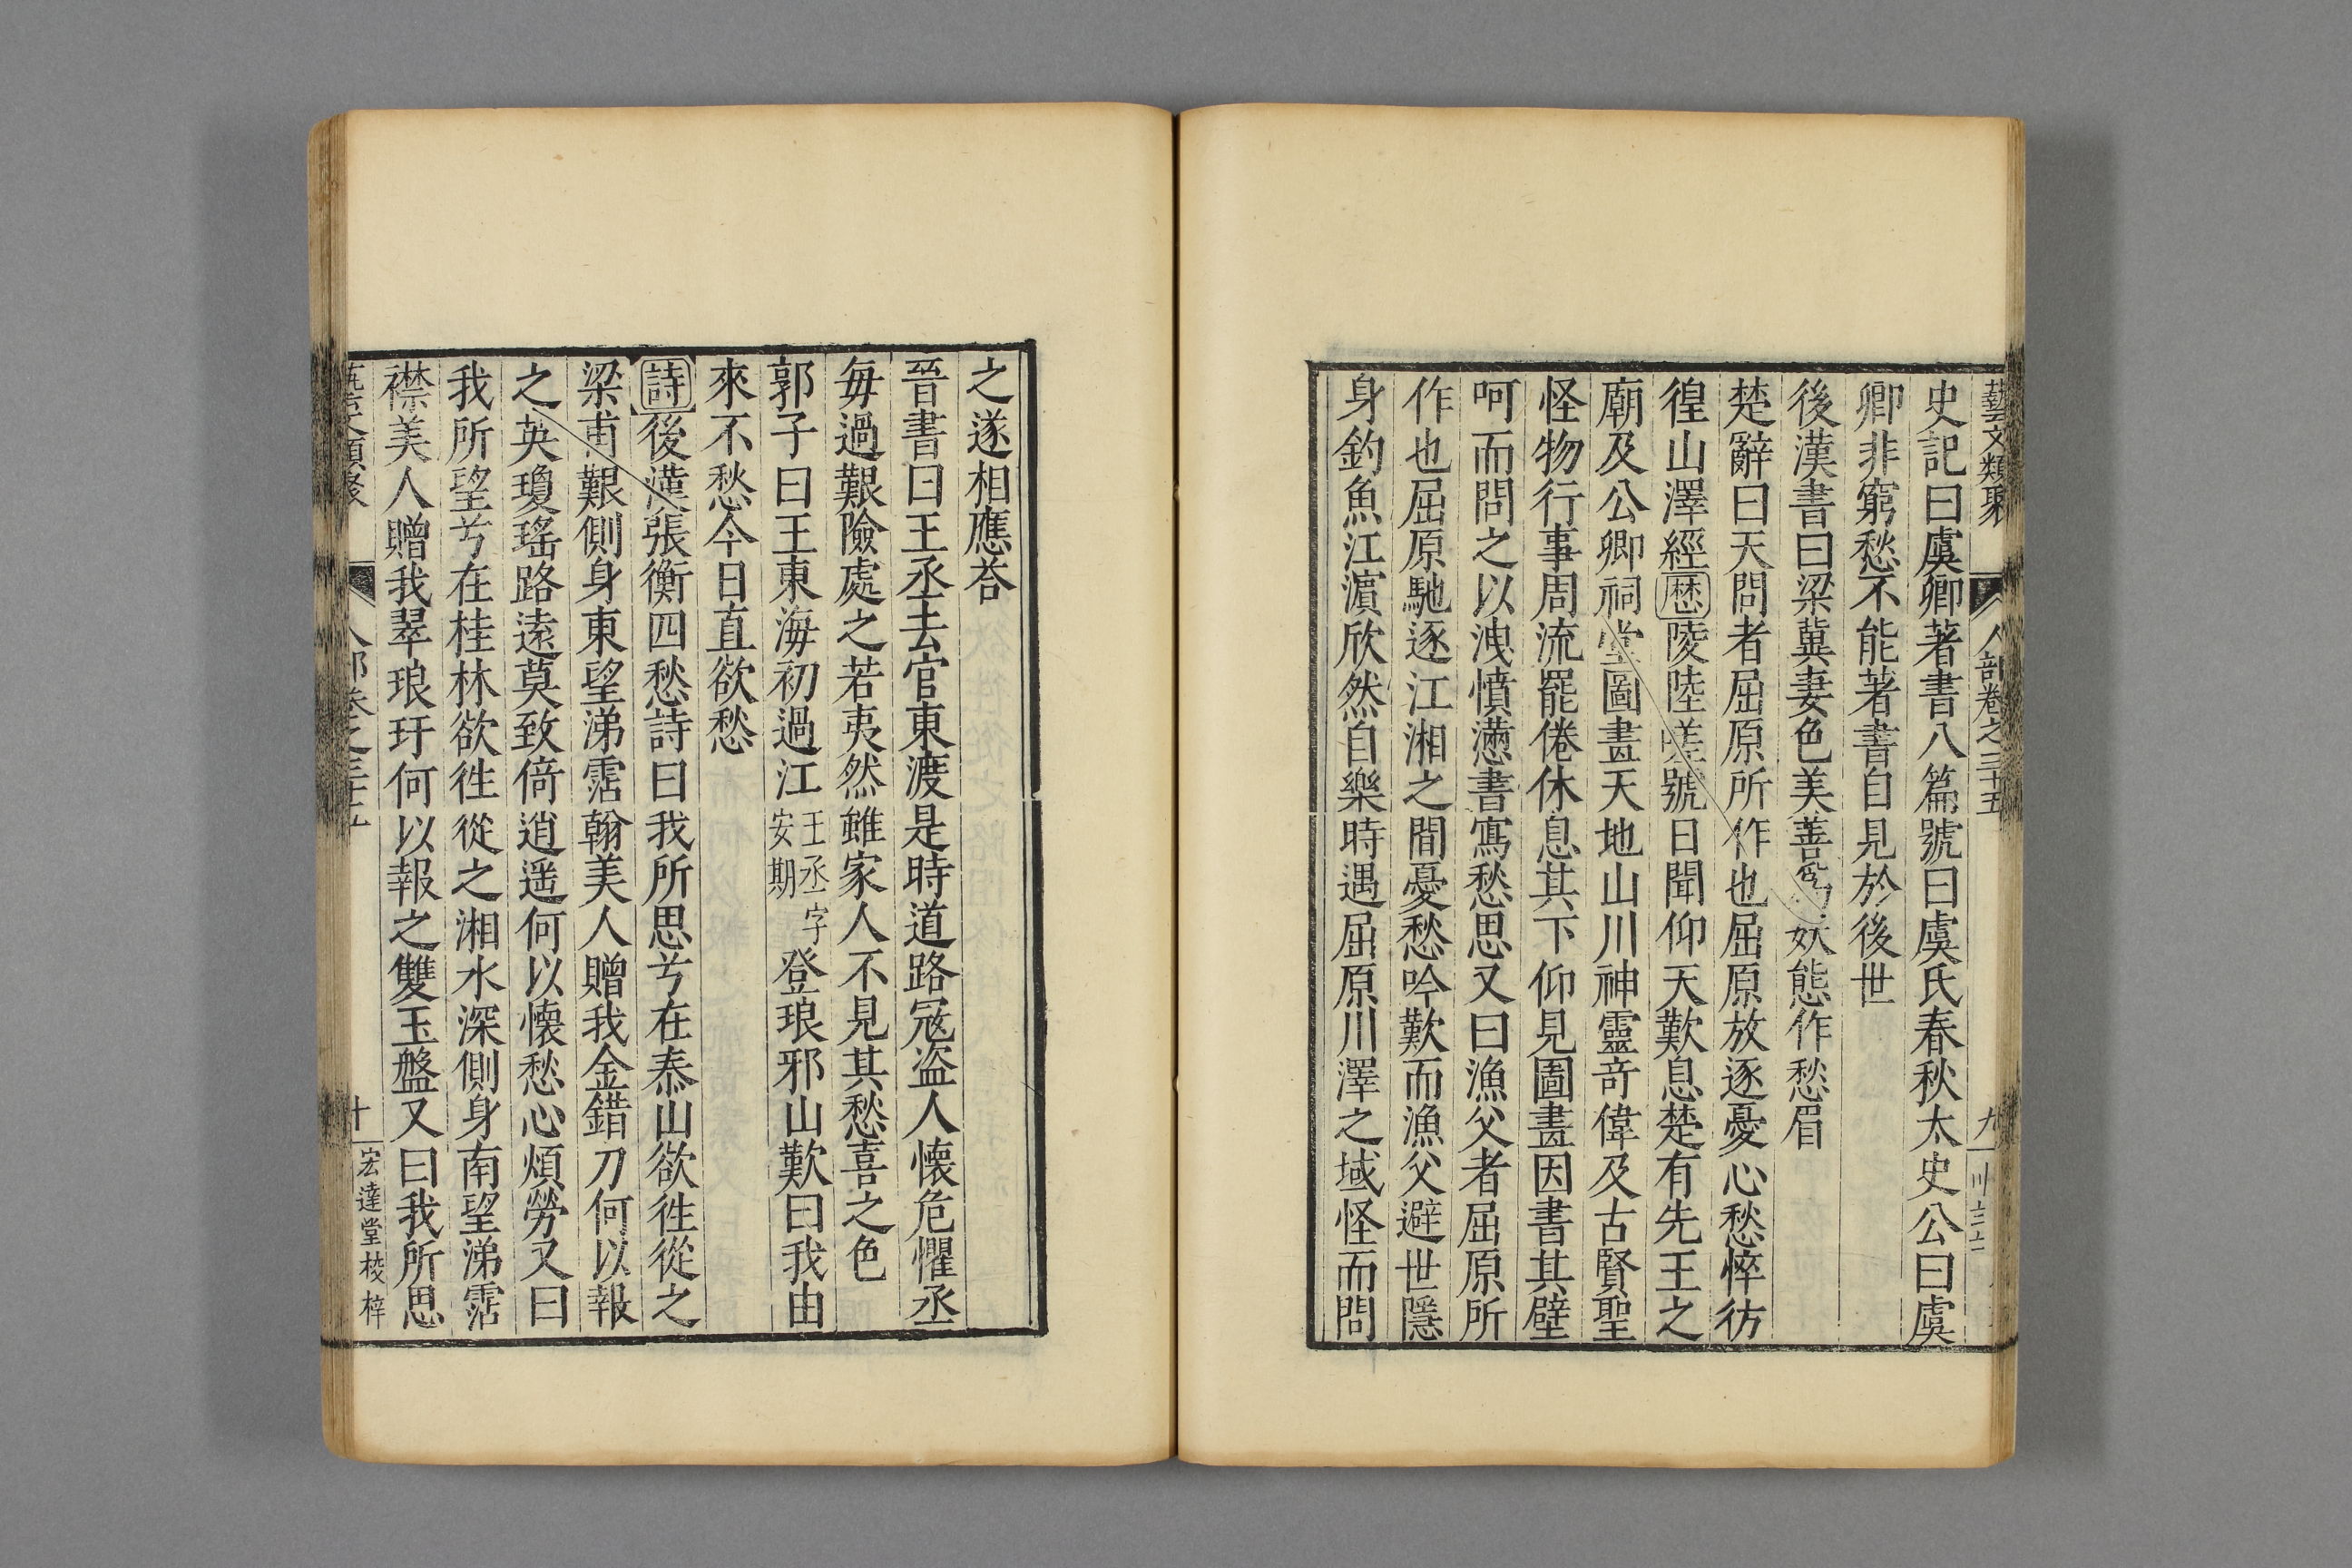 藝文類聚 人部卷之三十五 九
史記曰虞卿著書八篇號曰虞氏春秋太史公曰虞
卿非窮愁不能著書自見於後世
後漢書曰梁冀妻色美善為妖態作愁眉
楚辭曰天問者屈原所作也屈原放逐憂心愁悴彷
徨山澤經歷陵陸嗟號日聞仰天歎息楚有先王之
廟及公卿祠堂圖畫天地山川神靈奇偉及古賢聖
怪物行事周流罷倦休息其下仰見圖畫因書其壁
呵而問之以洩憤懣書寫愁思又曰漁父者屈原所
作也屈原馳逐江湘之間憂愁吟歎而漁父避世隱
身釣魚江濵欣然自樂時遇屈原川澤之域怪而問
之遂相應荅
晉書曰王丞去官東渡是時道路冦盗人懐危懼丞
毎過艱險處之若夷然雖家人不見其愁喜之色
郭子曰王東海初過江王丞字安期登琅邪山歎曰我由
來不愁今日直欲愁
詩後漢張衡四愁詩曰我所思兮在泰山欲徃從之
梁甫艱側身東望涕霑翰美人贈我金錯刀何以報
之英瓊瑤路逺莫致倚逍遥何以懐愁心煩勞又曰
我所望兮在桂林欲徃從之湘水深側身南望涕霑
襟美人贈我翠琅玕何以報之雙玉盤又曰我所思
文類聚 人部卷之三十 十 宏達堂校梓